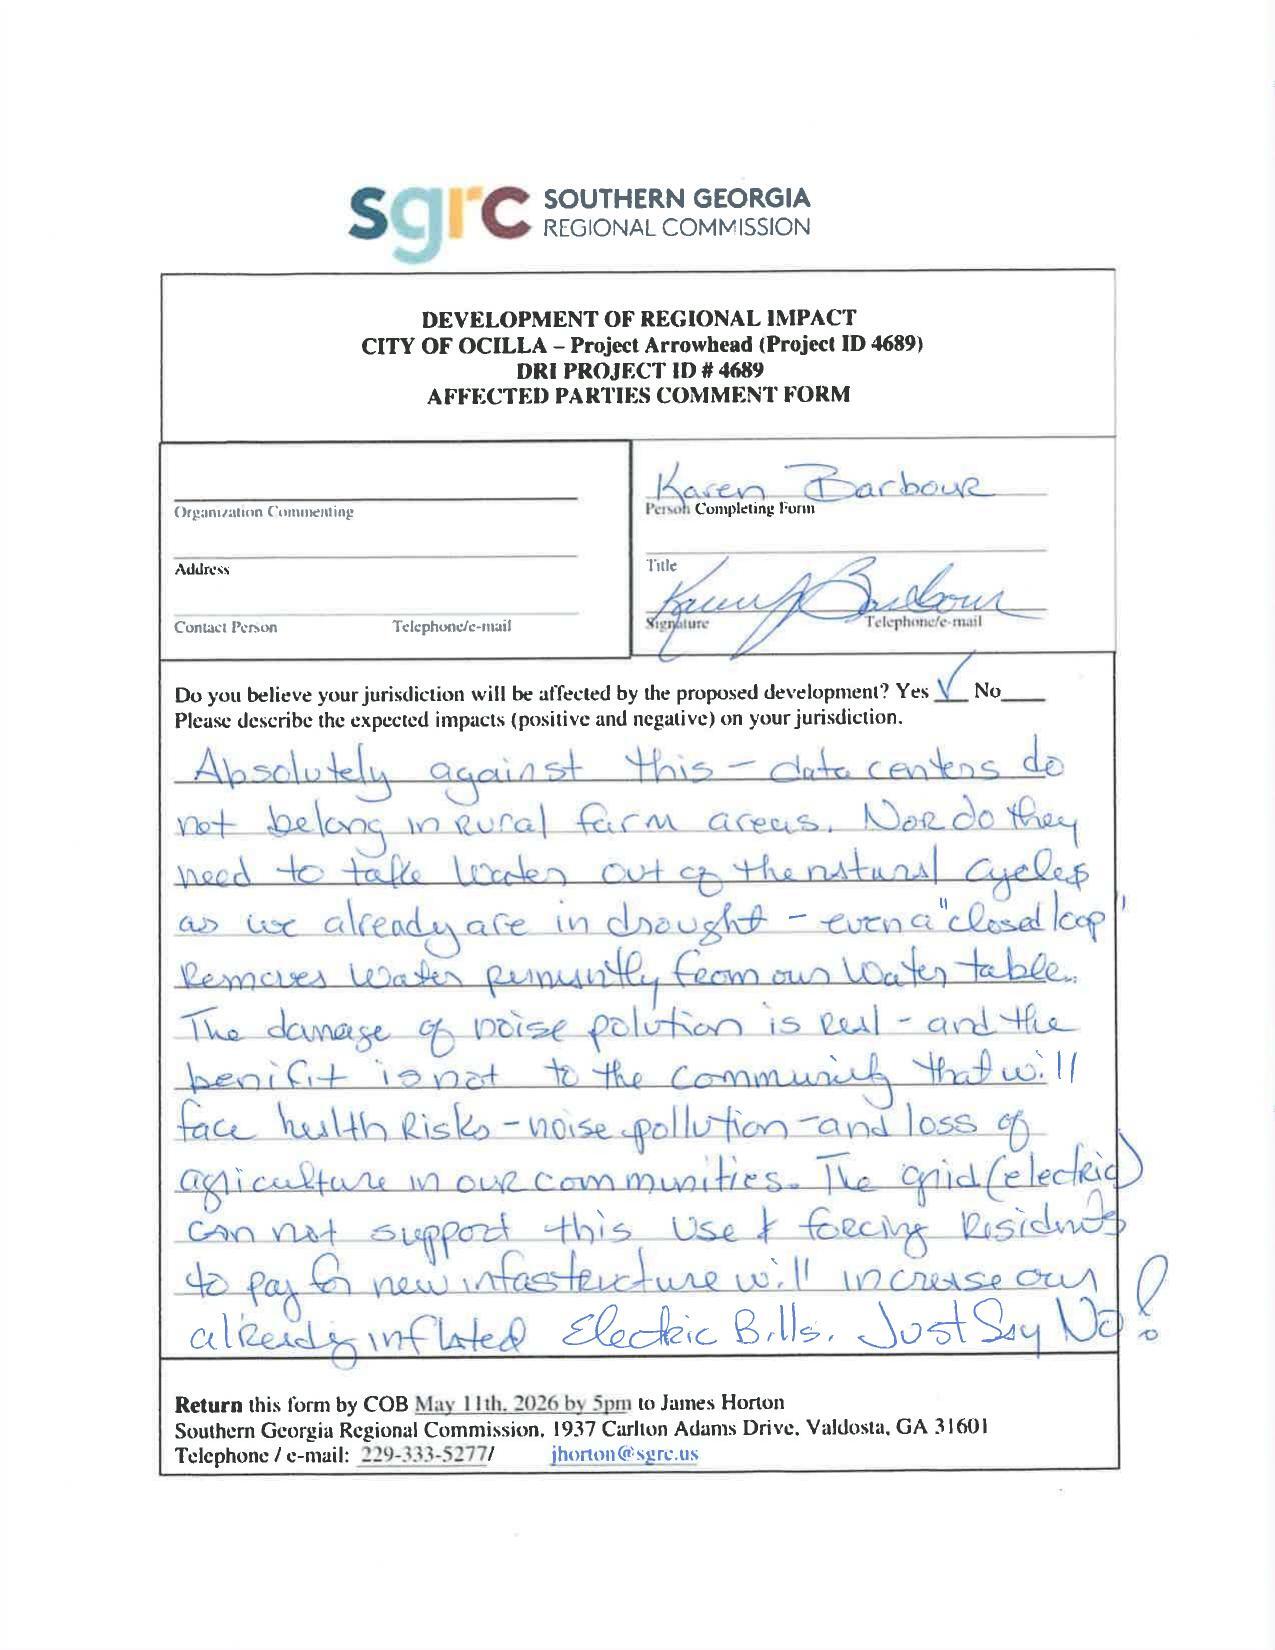 sgrc SOUTHERN GEORGIA
REGIONAL COMMISSION
DEVELOPMENT OF REGIONAL IMPACT
CITY OF OCILLA – Project Arrowhead (Project ID 4689)
DRI PROJECT ID # 4689
AFFECTED PARTIES COMMENT FORM
Organization Commenting
Address
Contact Person Telephone/e-mail
Karen Barbour
Person Completing Form
Title
Karen Barbour
Signature Telephone/e-mail
Do you believe your jurisdiction will be affected by the proposed development? Yes √ No
Please describe the expected impacts (positive and negative) on your jurisdiction.
Absolutely against this – data centers do
not belong in rural farm areas. Nor do they
need to take water out of the natural cycles
as we already are in drought – even a "closed loop"
Removes water from our water table.
The damage of noise polution is real – and the
benifit is not to the community that will
face health Risks – noise pollution – and loss of
agriculture in our communities. The grid (electric)
can not support this use & forcing Residents
to pay for new infastructure will increase our
already inflated Electric Bills. Just Say No!
Return this form by COB May 11th, 2026 by 5pm to James Horton
Southern Georgia Regional Commission, 1937 Carlton Adams Drive, Valdosta, GA 31601
Telephone / e-mail: 229-333-5277/ jhorton@sgrc.us